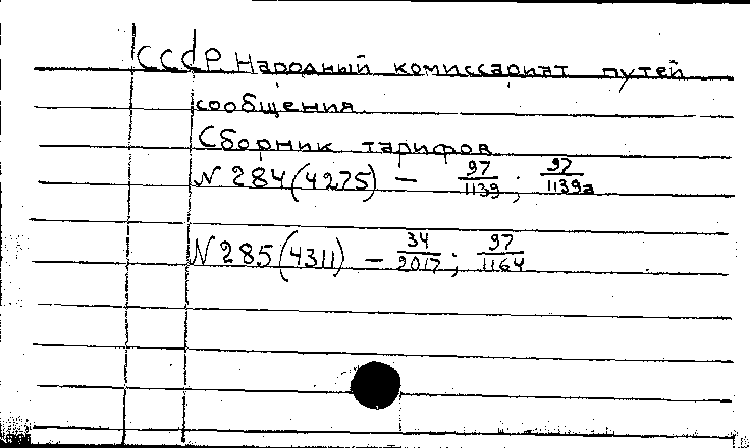 СССР. Народный комиссариат путей
сообщения
Сборник тарифов
№ 284 (4275) – 97/1139; 97/1139а
№ 285 (4311) – 34/2017; 97/1164